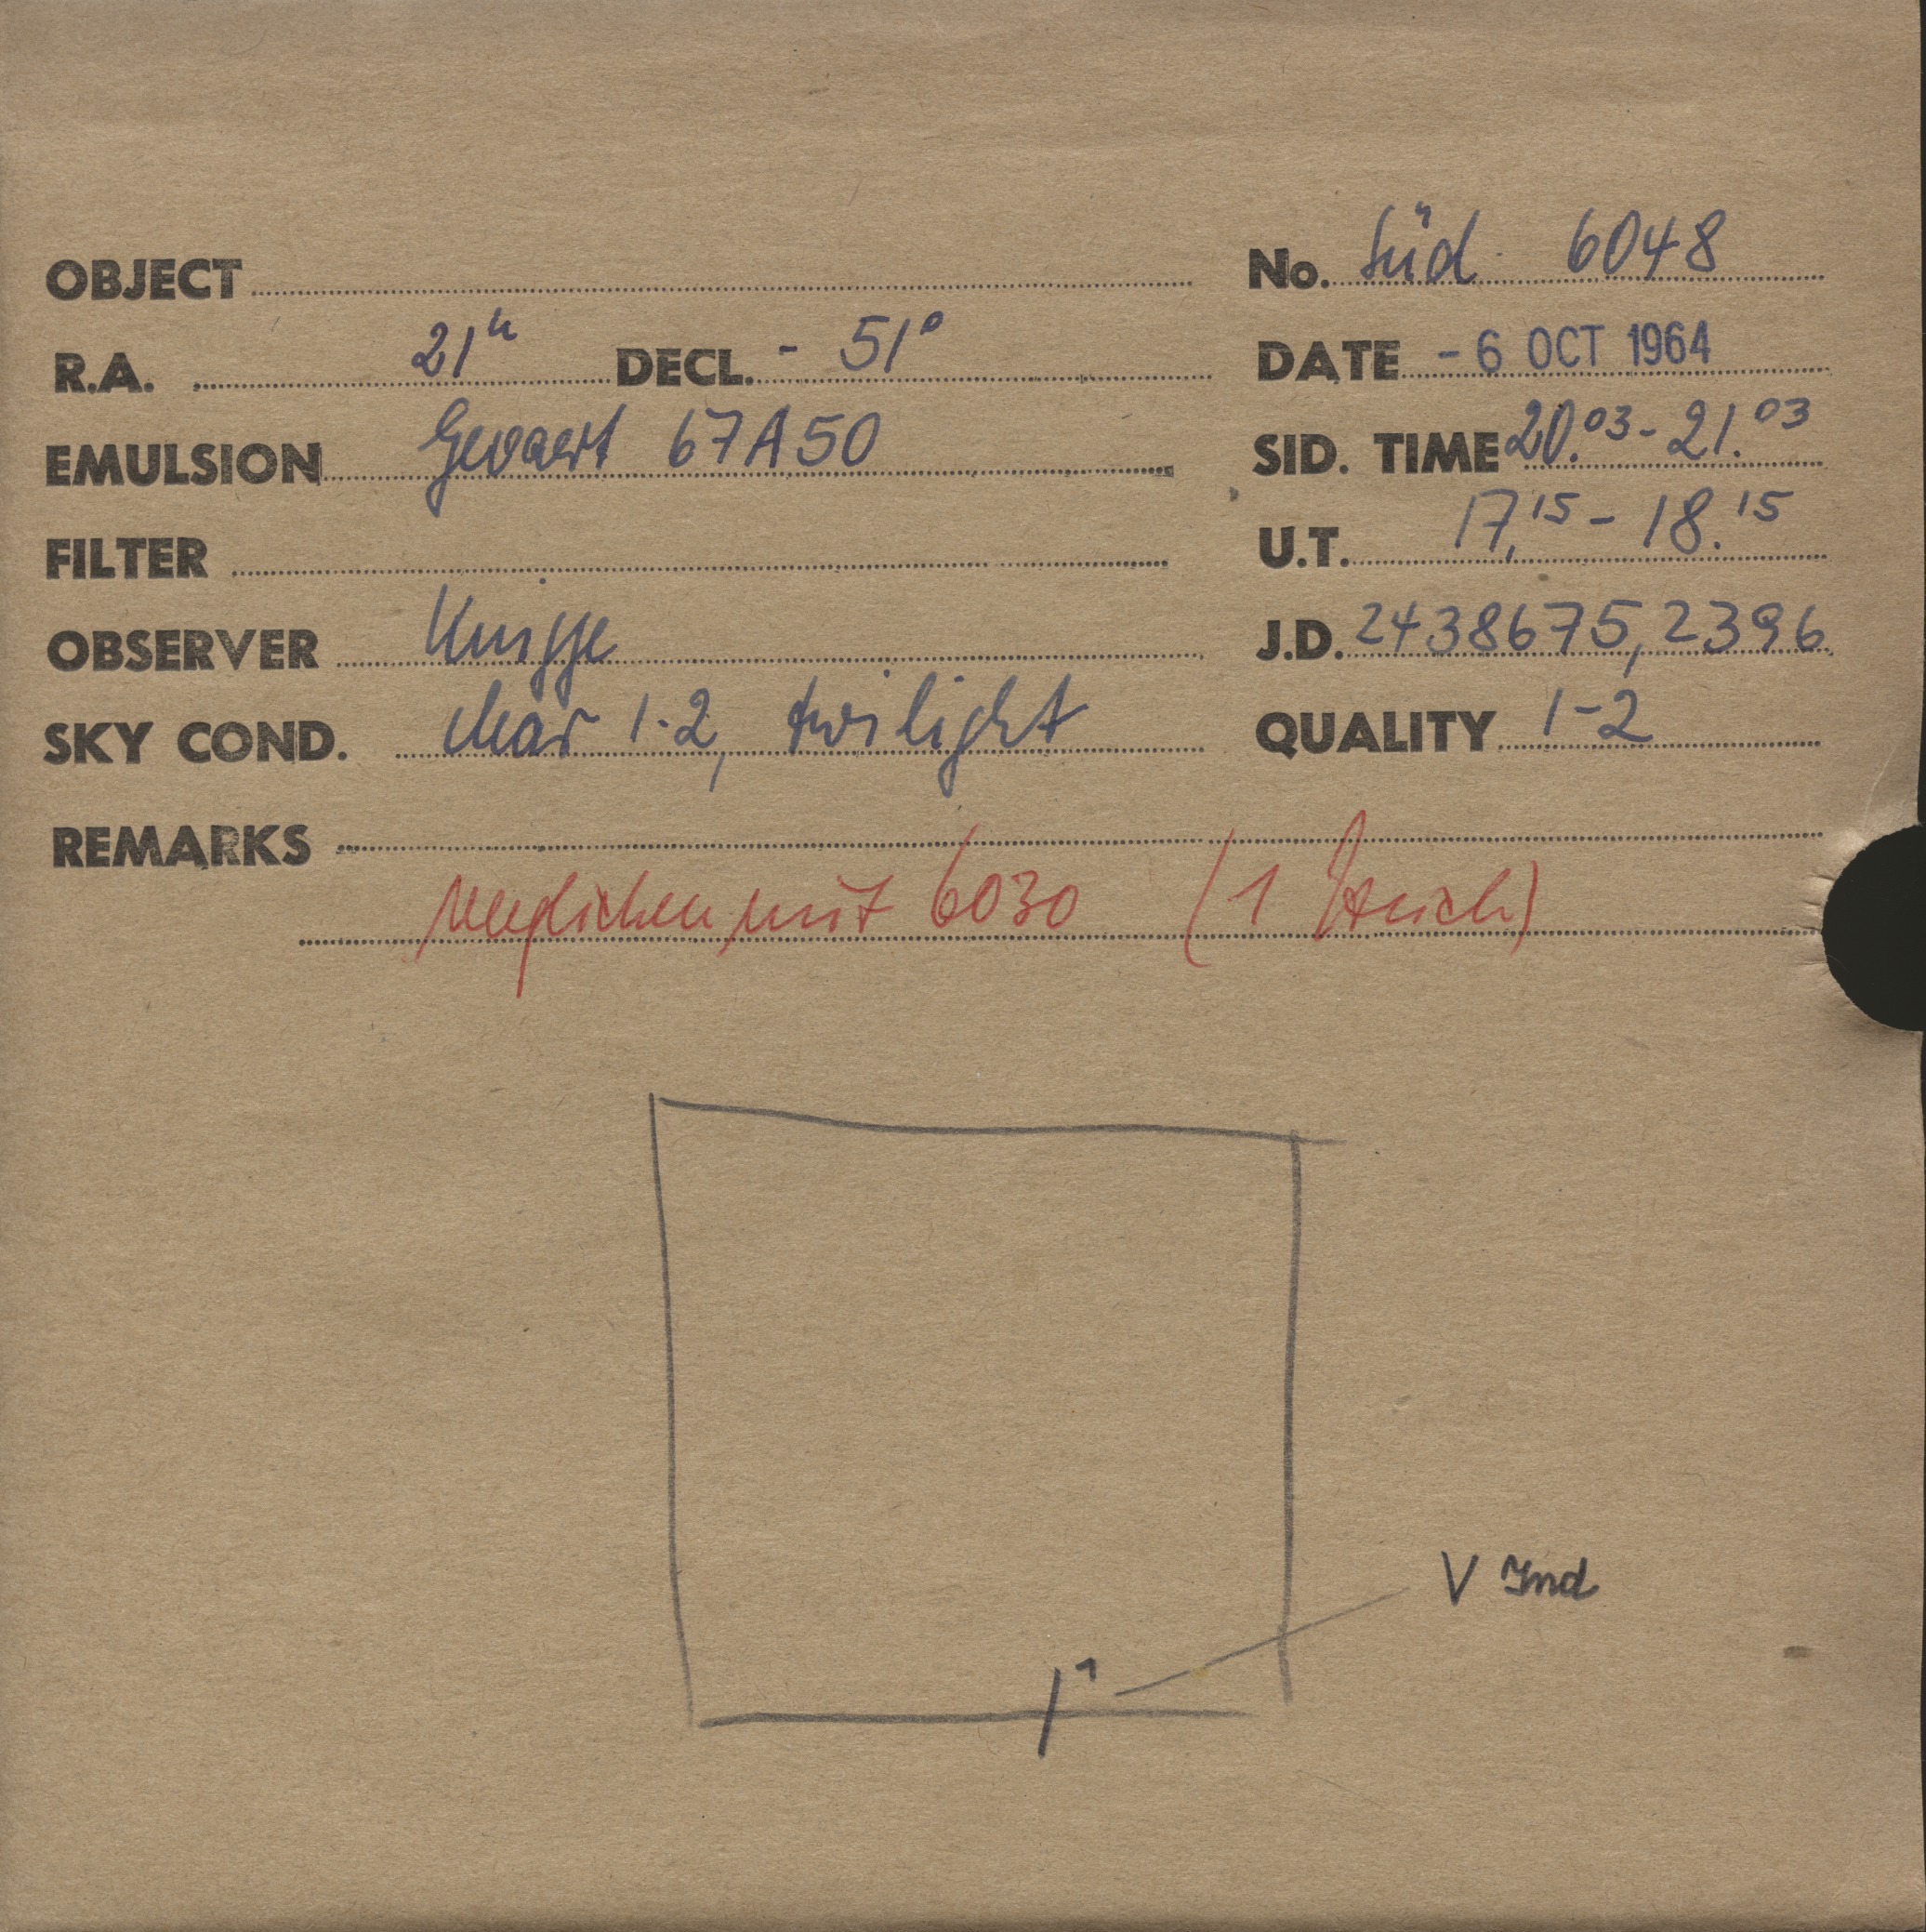 OBJECT No. Süd. 6048
R.A. 21h DECL. - 51° DATE - 6 OCT 1964
EMULSION Gevaert 67A50 SID. TIME 20.03 - 21.03
FILTER U.T. 17.15 - 18.15
OBSERVER Knigge J.D. 2438675,2396
SKY COND. clear 1-2, twilight QUALITY 1-2
REMARKS
verglichen mit 6030 (1 Strich)
V Ind
1